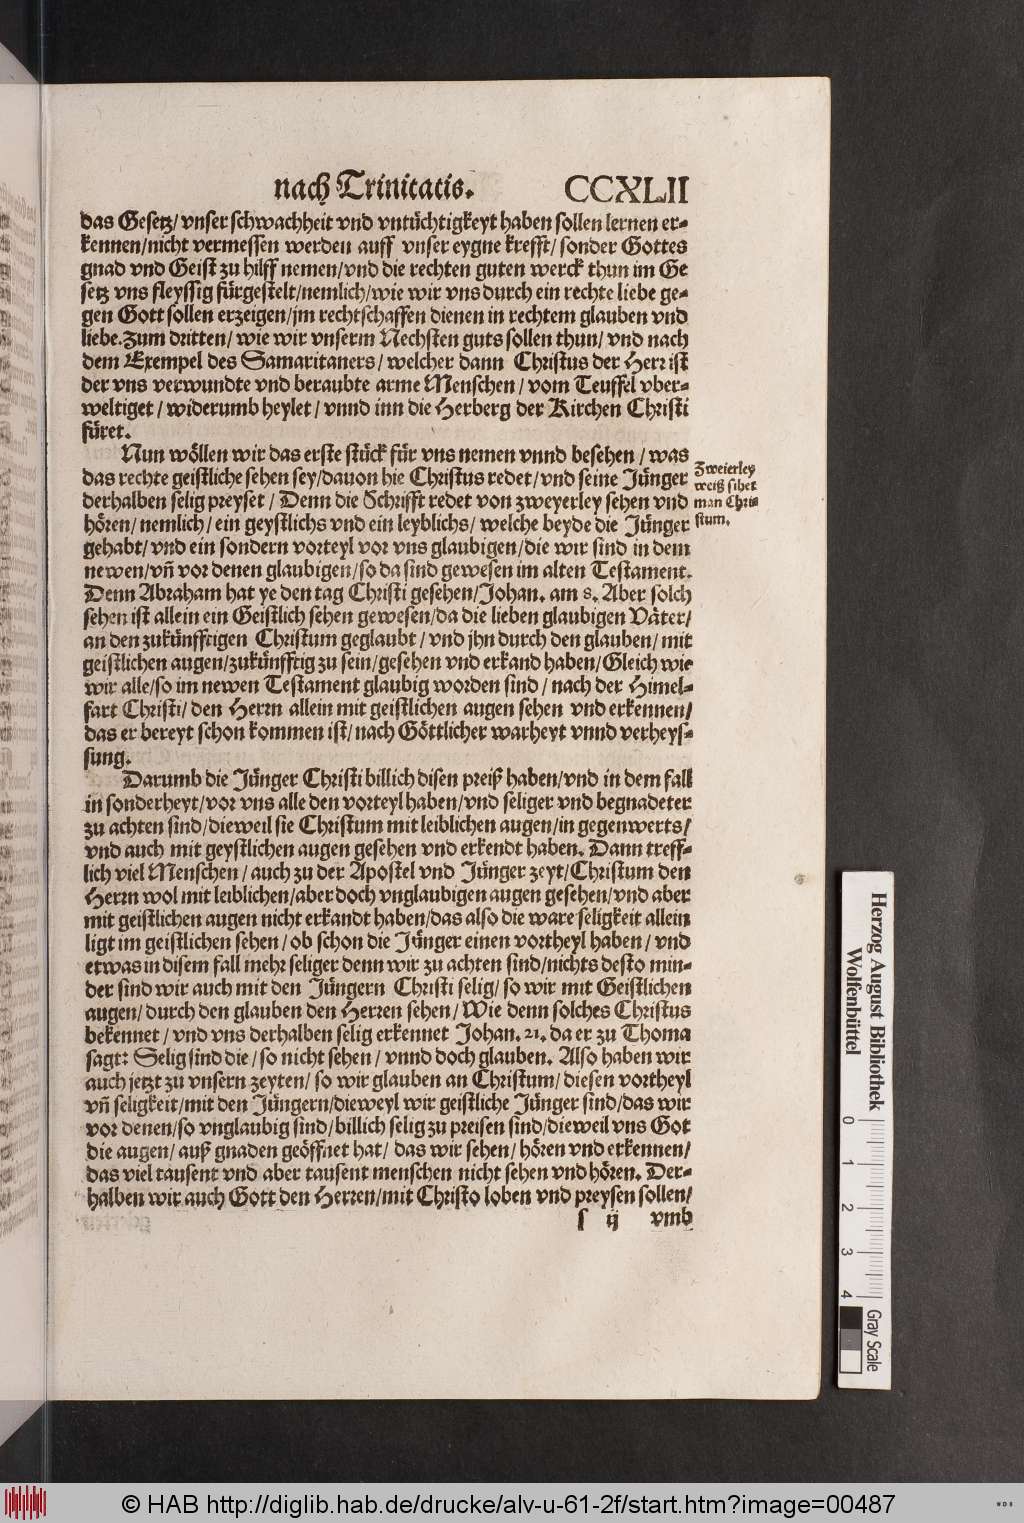 nach Trinitatis. CCXLII
das Gesetz/ vnser schwachheit vnd vntüchtigkeyt haben sollen lernen er-
kennen/nicht vermessen werden auff vnser eygne krefft/ sonder Gottes
gnad vnd Geist zu hilff nemen/vnd die rechten guten werck thun im Ge
setz vns fleyssig fürgestelt/nemlich/wie wir vns durch ein rechte liebe ge-
gen Gott sollen erzeigen/jm rechtschaffen dienen in rechtem glauben vnd
liebe. Zum dritten/ wie wir vnserm Nechsten guts sollen thun/ vnd nach
dem Exempel des Samaritaners/ welcher dann Christus der Herr ist
der vns verwundte vnd beraubte arme Menschen/ vom Teuffel vber-
weltiget/ widerumb heylet/ vnnd inn die Herberg der Kirchen Christi
füret.
Nun wöllen wir das erste stück für vns nemen vnnd besehen/ was
das rechte geistliche sehen sey/dauon hie Christus redet/vnd seine Jünger
derhalben selig preyset/ Denn die Schrifft redet von zweyerley sehen vnd
hören/ nemlich/ ein geystlichs vnd ein leyblichs/ welche beyde die Jünger
gehabt/ vnd ein sondern vorteyl vor vns glaubigen/die wir sind in dem
newen/vñ vor denen glaubigen/so da sind gewesen im alten Testament.
Denn Abraham hat ye den tag Christi gesehen/Johan. am 8. Aber solch
sehen ist allein ein Geistlich sehen gewesen/da die lieben glaubigen Väter/
an den zukünfftigen Christum geglaubt/ vnd jhn durch den glauben/ mit
geistlichen augen/zukünfftig zu sein/gesehen vnd erkand haben/Gleich wie
wir alle/so im newen Testament glaubig worden sind/ nach der Himel-
fart Christi/ den Herrn allein mit geistlichen augen sehen vnd erkennen/
das er bereyt schon kommen ist/ nach Göttlicher warheyt vnnd verheys-
sung.
Darumb die Jünger Christi billich disen preiß haben/vnd in dem fall
in sonderheyt/vor vns alle den vorteyl haben/vnd seliger vnd begnadeter
zu achten sind/dieweil sie Christum mit leiblichen augen/in gegenwerts/
vnd auch mit geystlichen augen gesehen vnd erkendt haben. Dann treff-
lich viel Menschen/ auch zu der Apostel vnd Jünger zeyt/Christum den
Herrn wol mit leiblichen/aber doch vnglaubigen augen gesehen/vnd aber
mit geistlichen augen nicht erkandt haben/das also die ware seligkeit allein
ligt im geistlichen sehen/ ob schon die Jünger einen vortheyl haben/ vnd
etwas in disem fall mehr seliger denn wir zu achten sind/nichts desto min-
der sind wir auch mit den Jüngern Christi selig/ so wir mit Geistlichen
augen/ durch den glauben den Herren sehen/ Wie denn solches Christus
bekennet/ vnd vns derhalben selig erkennet Johan. 21. da er zu Thoma
sagt: Selig sind die/ so nicht sehen/ vnnd doch glauben. Also haben wir
auch jetzt zu vnsern zeyten/ so wir glauben an Christum/ diesen vortheyl
vñ seligkeit/mit den Jüngern/dieweyl wir geistliche Jünger sind/das wir
vor denen/so vnglaubig sind/billich selig zu preisen sind/dieweil vns Got
die augen/ auß gnaden geöffnet hat/ das wir sehen/ hören vnd erkennen/
das viel tausent vnd aber tausent menschen nicht sehen vnd hören. Der-
halben wir auch Gott den Herren/mit Christo loben vnd preysen sollen/
s ij vmb
Zweierley
weiß sihet
man Chri-
stum.
Herzog August Bibliothek
Wolfenbüttel
0 1 2 3 4
Gray Scale
© HAB http://diglib.hab.de/drucke/alv-u-61-2f/start.htm?image=00487
WDB